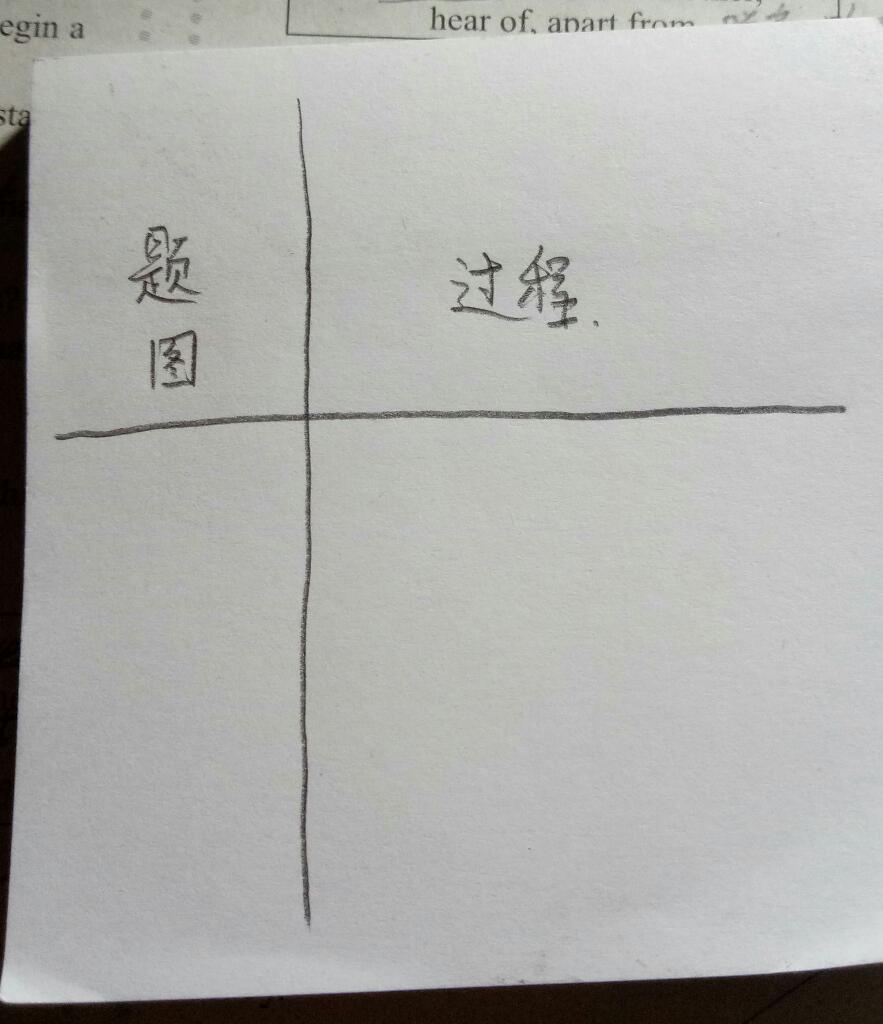 egin a
hear of, apart from
sta
题
图
过程.